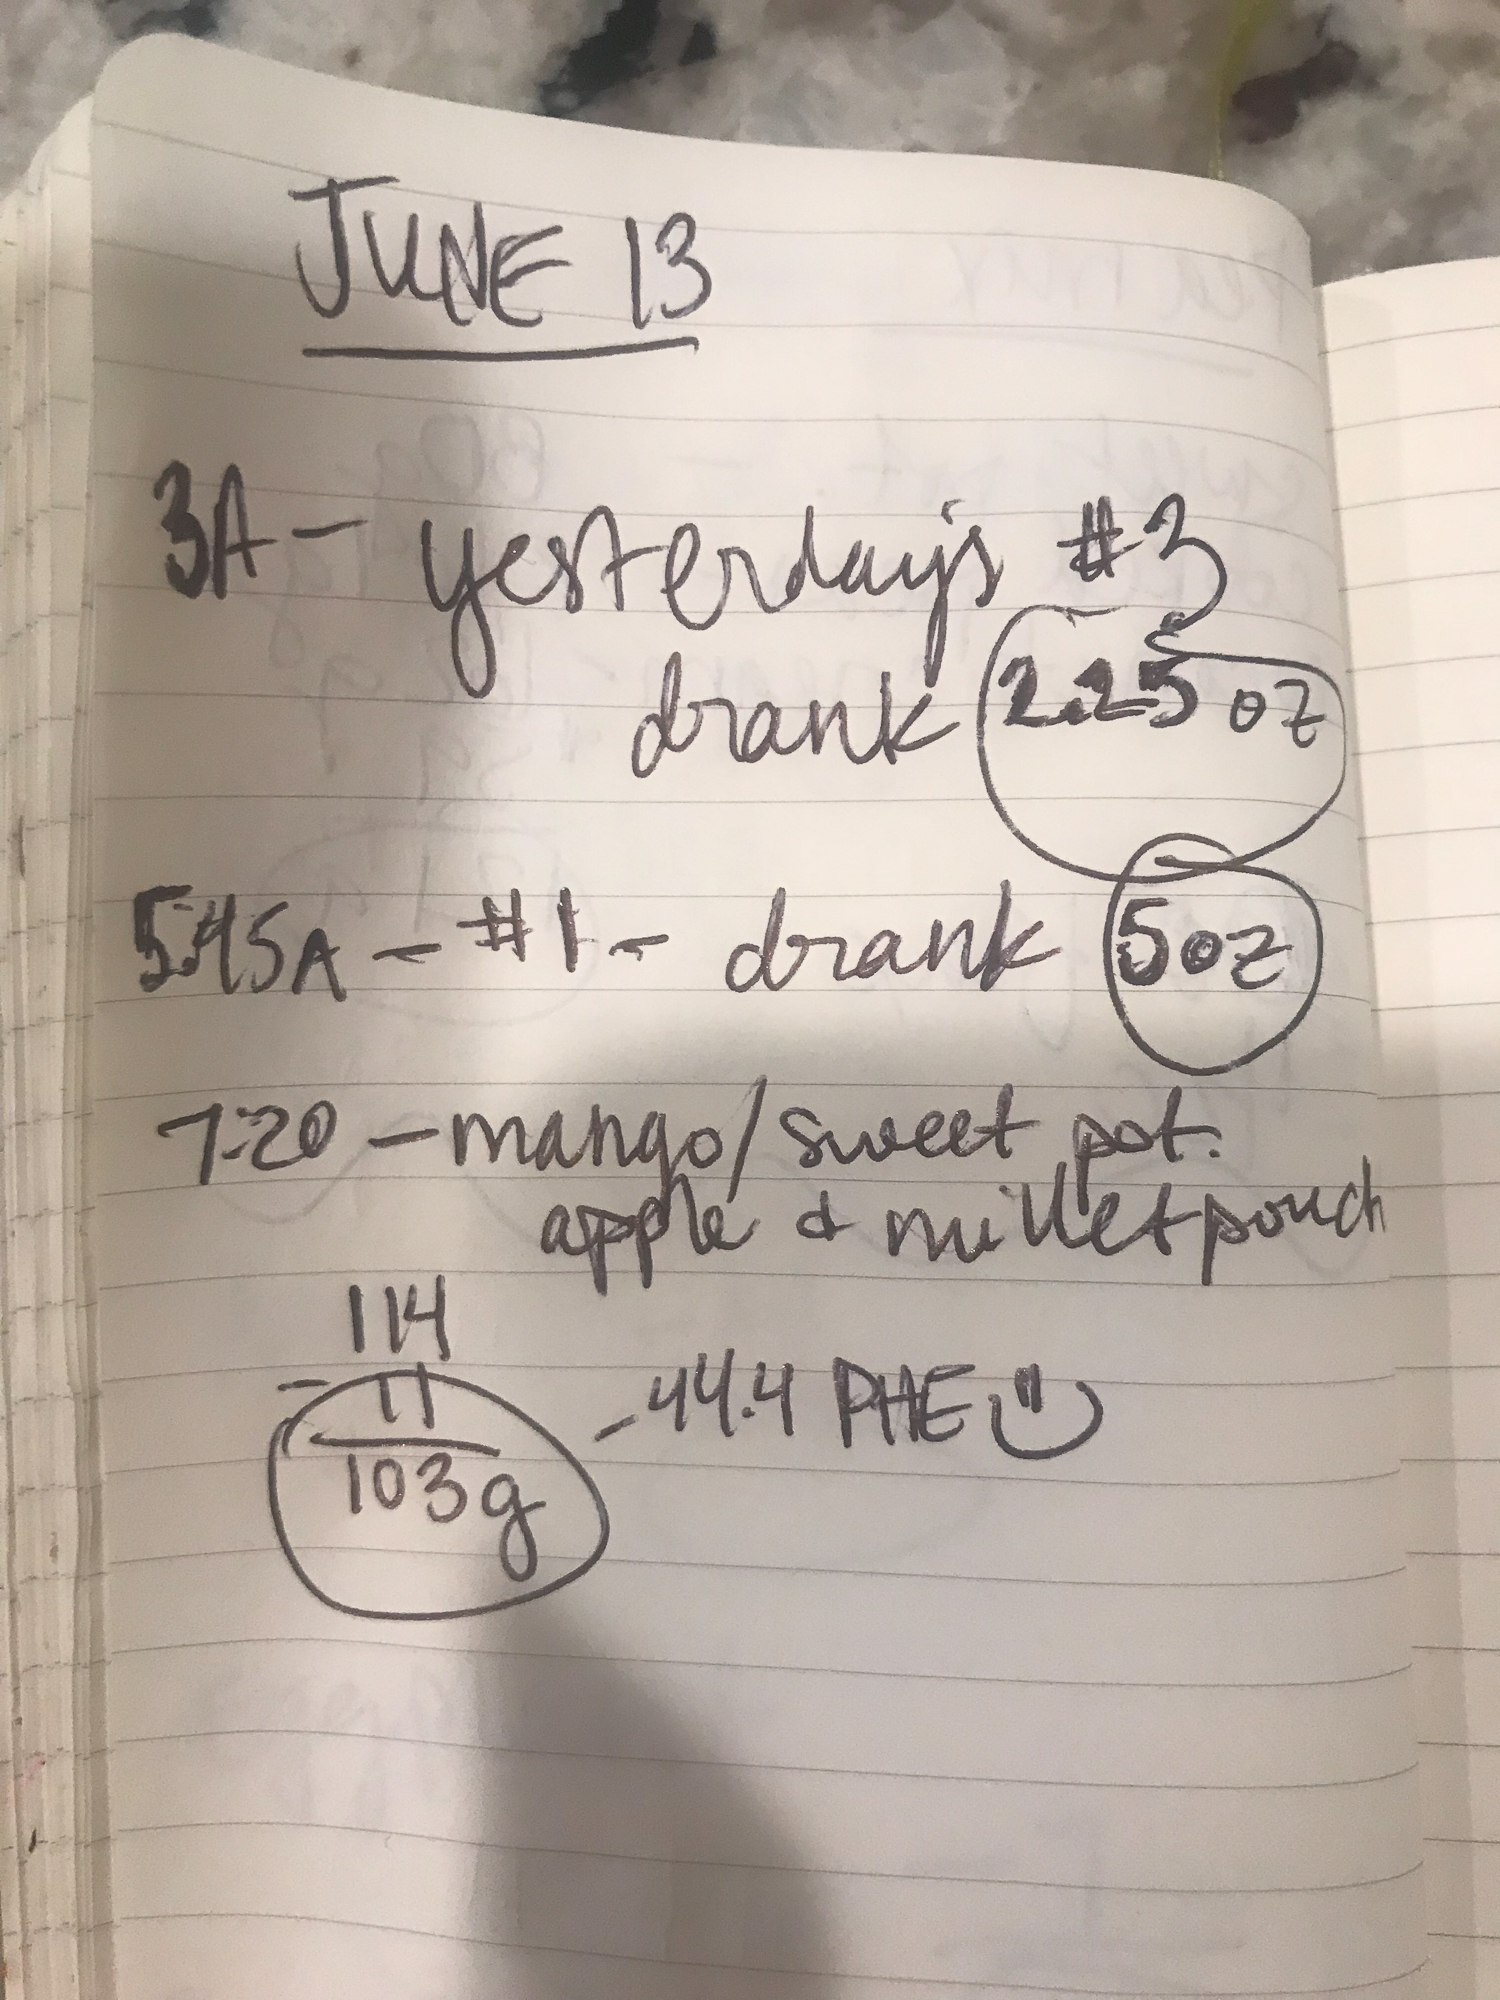 JUNE 13
3A - yesterday's #3
drank 2.25 oz
5:45A - #1 - drank 5oz
7:20 - mango/sweet pot.
apple & millet pouch
114
- 11
103g
- 44.4 PHE